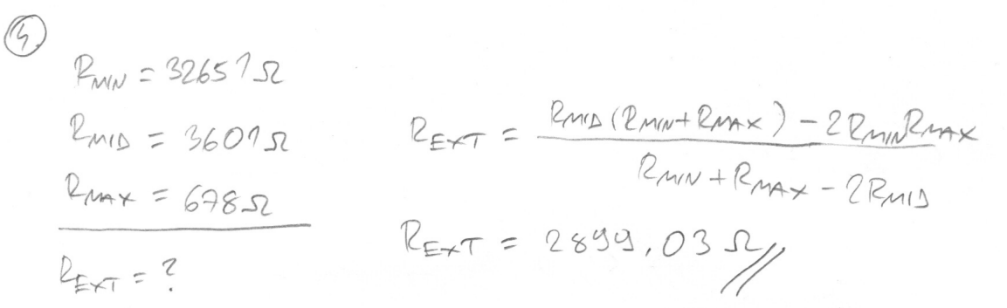 4
R_MIN = 32651 Ω
R_MID = 3601 Ω
R_MAX = 678 Ω
R_EXT = ?
R_EXT = (R_MID (R_MIN + R_MAX) - 2R_MIN R_MAX) / (R_MIN + R_MAX - 2R_MID)
R_EXT = 2899,03 Ω //